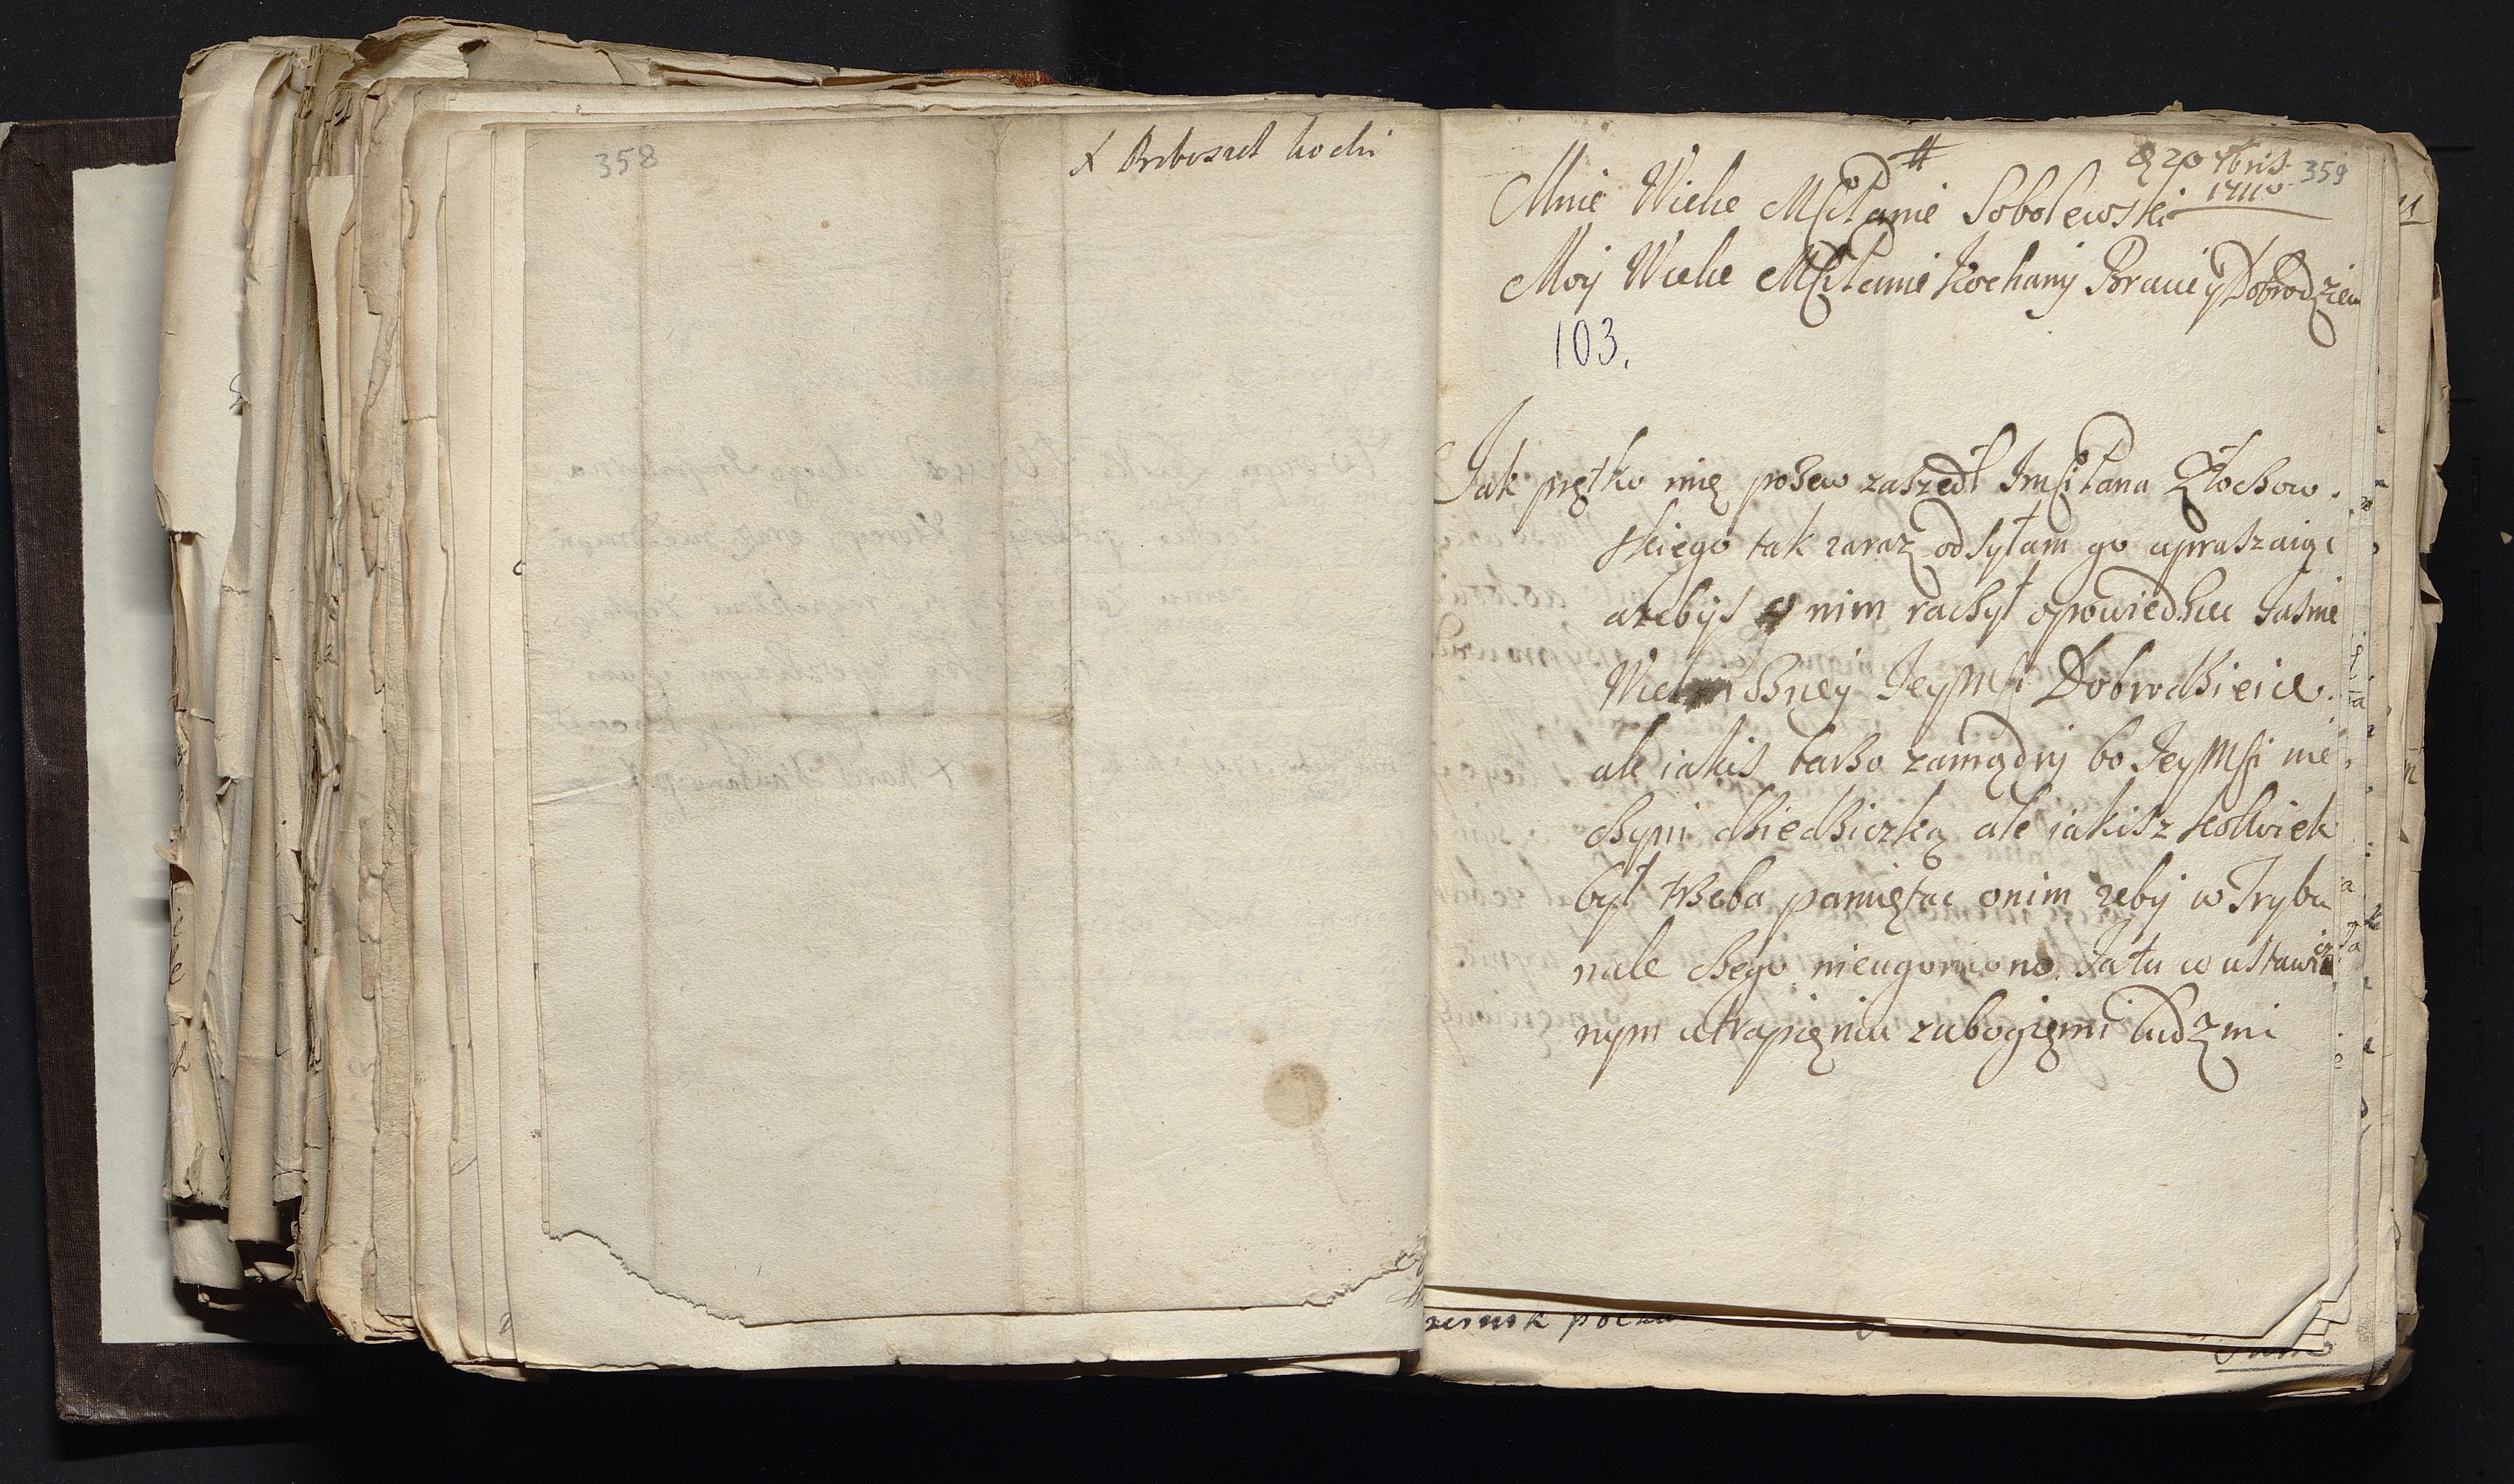 358
X
359
20 7bris
Mnie Wielce Mści Panie Sobolewski
Moy Wielce Mści Panie Kochany Bracie y Dobrodzieiu
103.
Jak prętko mię posew zaszedł Jmści Pana Złochow.
skiego tak zaraz odsyłam go upraszaiąc
azebys o nim raczył opowiedziec Jasnie
Wiel Jey Mści Dobrodzieice.
ale iakis barzo zamądry bo Jey Mści nie
czyni dziedziczką ale iakisz kolwiek
był trzeba pamiętac o nim zeby w Trybu
nale czego nieugoniono. Ja tu w ustawicz
nym utrapięniu zubogięmi ludzmi